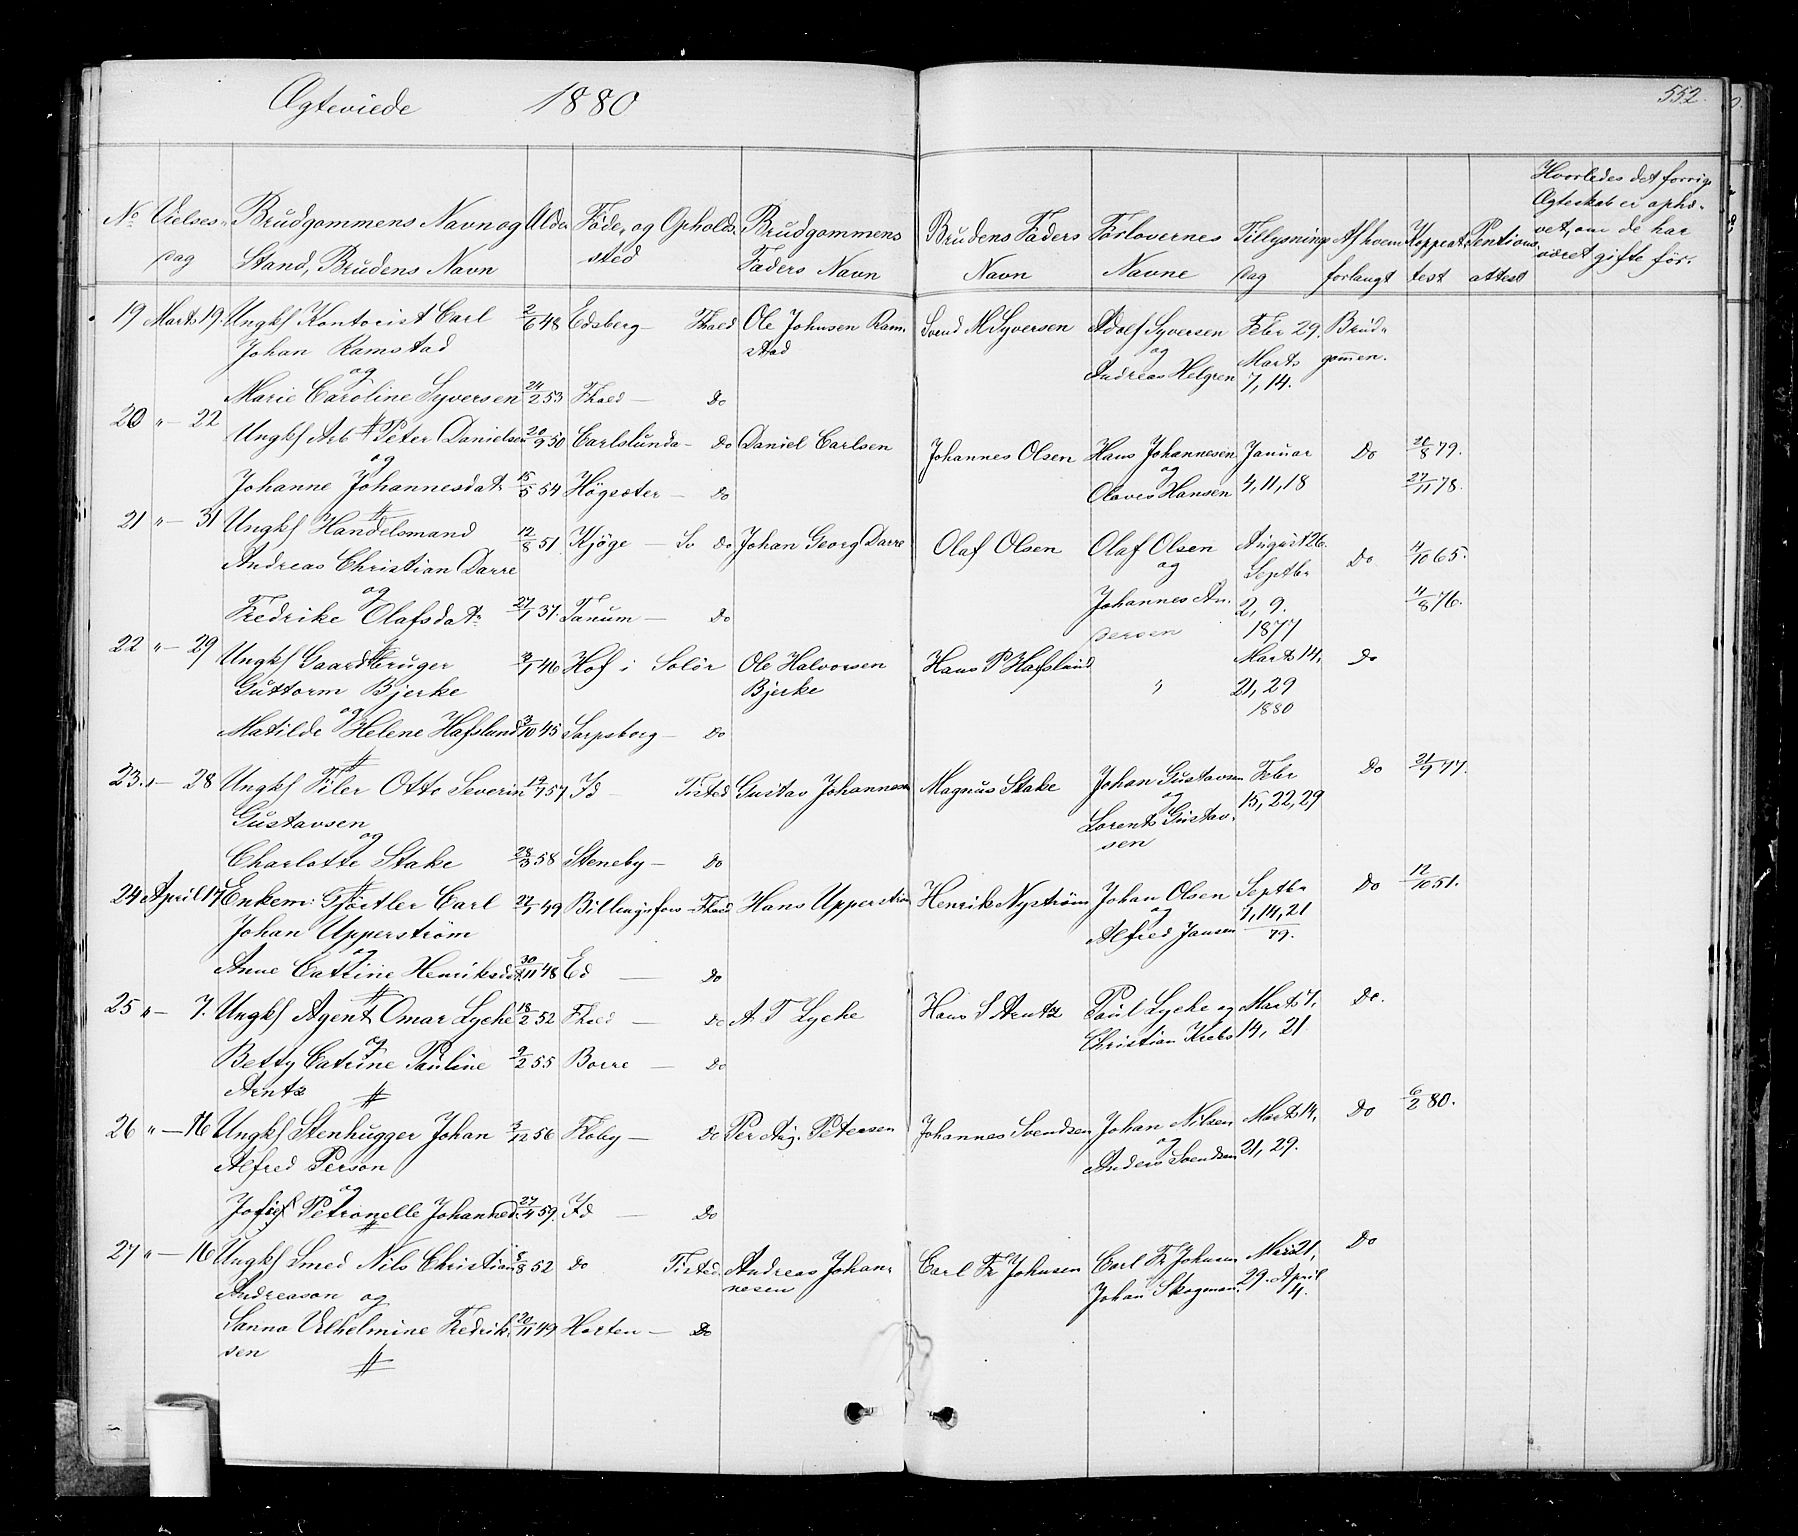 Ægteviede 1880
552.
No Vielses- dag
Brudgommens Navn og Stand, Brudens Navn
Alder
Føde, og Opholds- sted
Brudgommens Faders Navn
Brudens Faders Navn
Forlovernes Navne
Tillysnings dag
Af hvem forlangt
Koppeat- test
Pentions- attest
Hvorledes det forrige
Ægteskab er ophæ-
vet, om de har
været gifte før.
19 Marts 19. Ungkf Kontorist Carl 2/6 48 Edsberg — Fhald Ole Johnsen Ram- Svend M Syversen Adolf Syversen Febr 29. Brud-
Johan Ramstad stad og Marts gommen.
og Andreas Helgren 7, 14.
Marie Caroline Syversen 24/2 53 Fhald — Do
20 " — 22 Ungkf Arb Peter Danielsen 20/9 50 Carlslunda — Do Daniel Carlsen Johannes Olsen Hans Johannesen Januar Do 20/8 79.
og og
Johanne Johannesdatr 15/5 54 Högsæter — Do Olaves Hansen 4, 11, 18 27/11 78.
21 " — 31 Ungkf Handelsmand 12/8 51 Kjöge — Do Johan Georg Darre Olaf Olsen Olaf Olsen August 26. Do 11/10 65.
Andreas Christian Darre og Septbr
og Johannes An- 2, 9.
Fredrike Olafsdatr 27/1 37. Tanum — Do dersen 1877 11/8 76.
22 " — 29 Ungkf Gaardbruger 3/1 46 Hof i Solör Ole Halvorsen Hans P Hafslund " Marts 14, Do
Guttorm Bjerke Bjerke 21, 29
og 1880
Matilde Helene Hafslund 3/10 45 Sarpsborg — Do
23. " — 28 Ungkf Filer Otto Severin 19/7 57 Id — Tisted Gustav Johannesen Magnus Stake Johan Gustavsen Febr Do 21/9 77.
Gustavsen og 15, 22, 29
og Lorents Gustav-
sen
Charlotte Stake 28/3 58 Steneby — Do
24 April 17 Enkem: Gjörtler Carl 27/1 49 Billingsfors — Fhald Hans Upperström Henrik Nyström Johan Olsen Septbr Do 12/10 51.
Johan Upperström og 7, 14, 21
og Alfred Jansen 79.
Anne Catrine Henriksdtr 30/11 48 Ed — Do
25 " — 7. Ungkf Agent Omar Lyche 18/2 52 Fhald — Do A. T Lyche Hans S Arntz Paul Lyche og Marts 7, Do.
og Christian Krebs 14, 21
Betty Catrine Pauline 9/2 55 Borre — Do
Arntz
26 " — 16 Ungkf Stenhugger Johan 3/12 56 Floby — Do Per Aug. Petersen Johannes Svendsen Johan Nilsen Marts 14, Do 6/2 80.
Alfred Person og
og Anders Svendsen 21, 29.
Petronelle Johannesd. 27/4 59. Id — Do
27 " — 16 Ungkf Smed Nils Christian 8/8 52 do Tisted Andreas Johan- Carl Fr Johnsen Carl Fr Johnsen 21, Do
Andreason og nesen Johan Skogman. 29. April
4.
Sanna Vilhelmine Fredrik- 20/11 49 Horten — Do
sen